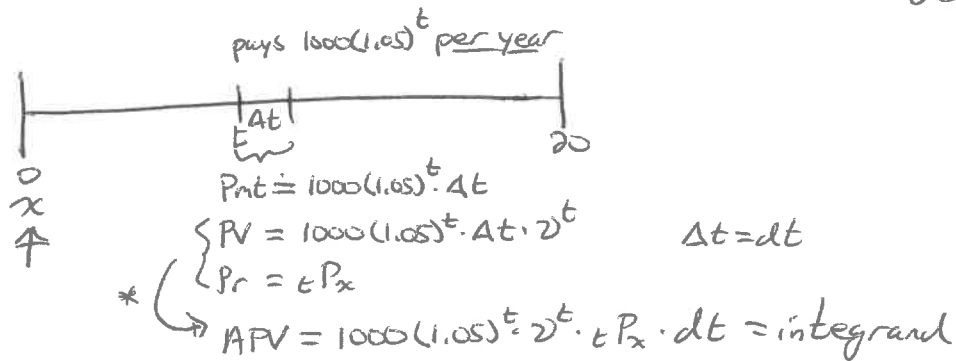 pays 1000(1.05)^t per year
t Δt
0 20
x
Pmt ≐ 1000(1.05)^t · Δt
PV = 1000(1.05)^t · Δt · v^t Δt = dt
Pr = ₜPₓ
*
APV = 1000(1.05)^t · v^t · ₜPₓ · dt = integrand